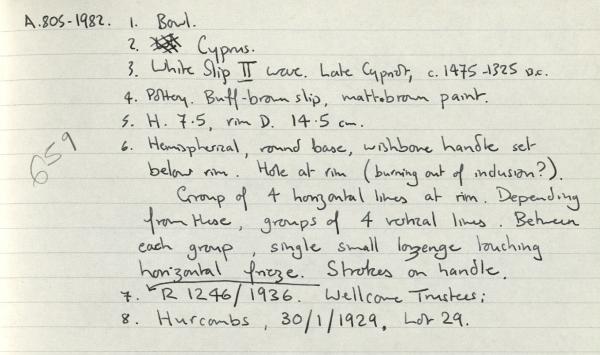 A.805-1982. 1. Bowl.
2. Cyprus.
3. White Slip II ware. Late Cypriot, c. 1475-1325 B.C.
4. Pottery. Buff-brown slip, matt-brown paint.
5. H. 7.5, rim D. 14.5 cm.
6. Hemispherical, round base, wishbone handle set
below rim. Hole at rim (burning out of inclusion?).
Group of 4 horizontal lines at rim. Depending
from these, groups of 4 vertical lines. Between
each group, single small lozenge touching
horizontal frieze. Strokes on handle.
7. R 1246/1936. Wellcome Trustees;
8. Hurcombs, 30/1/1929, Lot 29.
659